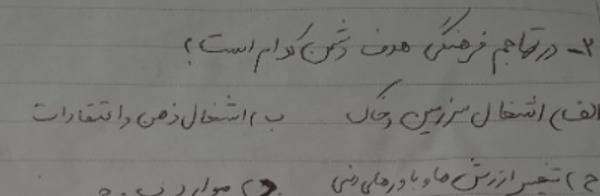 ۲- در تهاجم فرهنگی هدف دشمن کدام است؟
الف) اشغال سرزمین و خاک ب) اشغال ذهن و اعتقادات
ج) تغییر ارزش ها و باورهای دینی د) موارد ب و